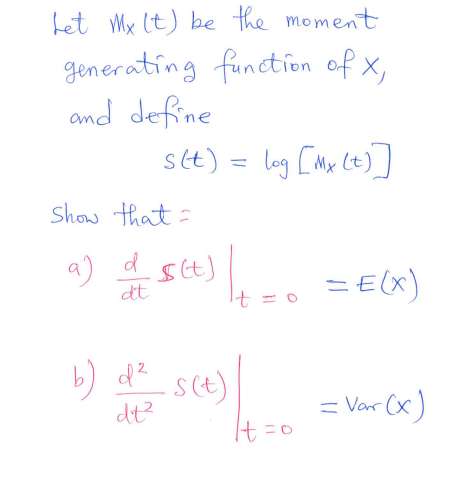 Let Mx(t) be the moment
generating function of X,
and define
S(t) = log [Mx(t)]
Show that:
a) d/dt S(t) |t=0 = E(X)
b) d²/dt² S(t) |t=0 = Var(X)